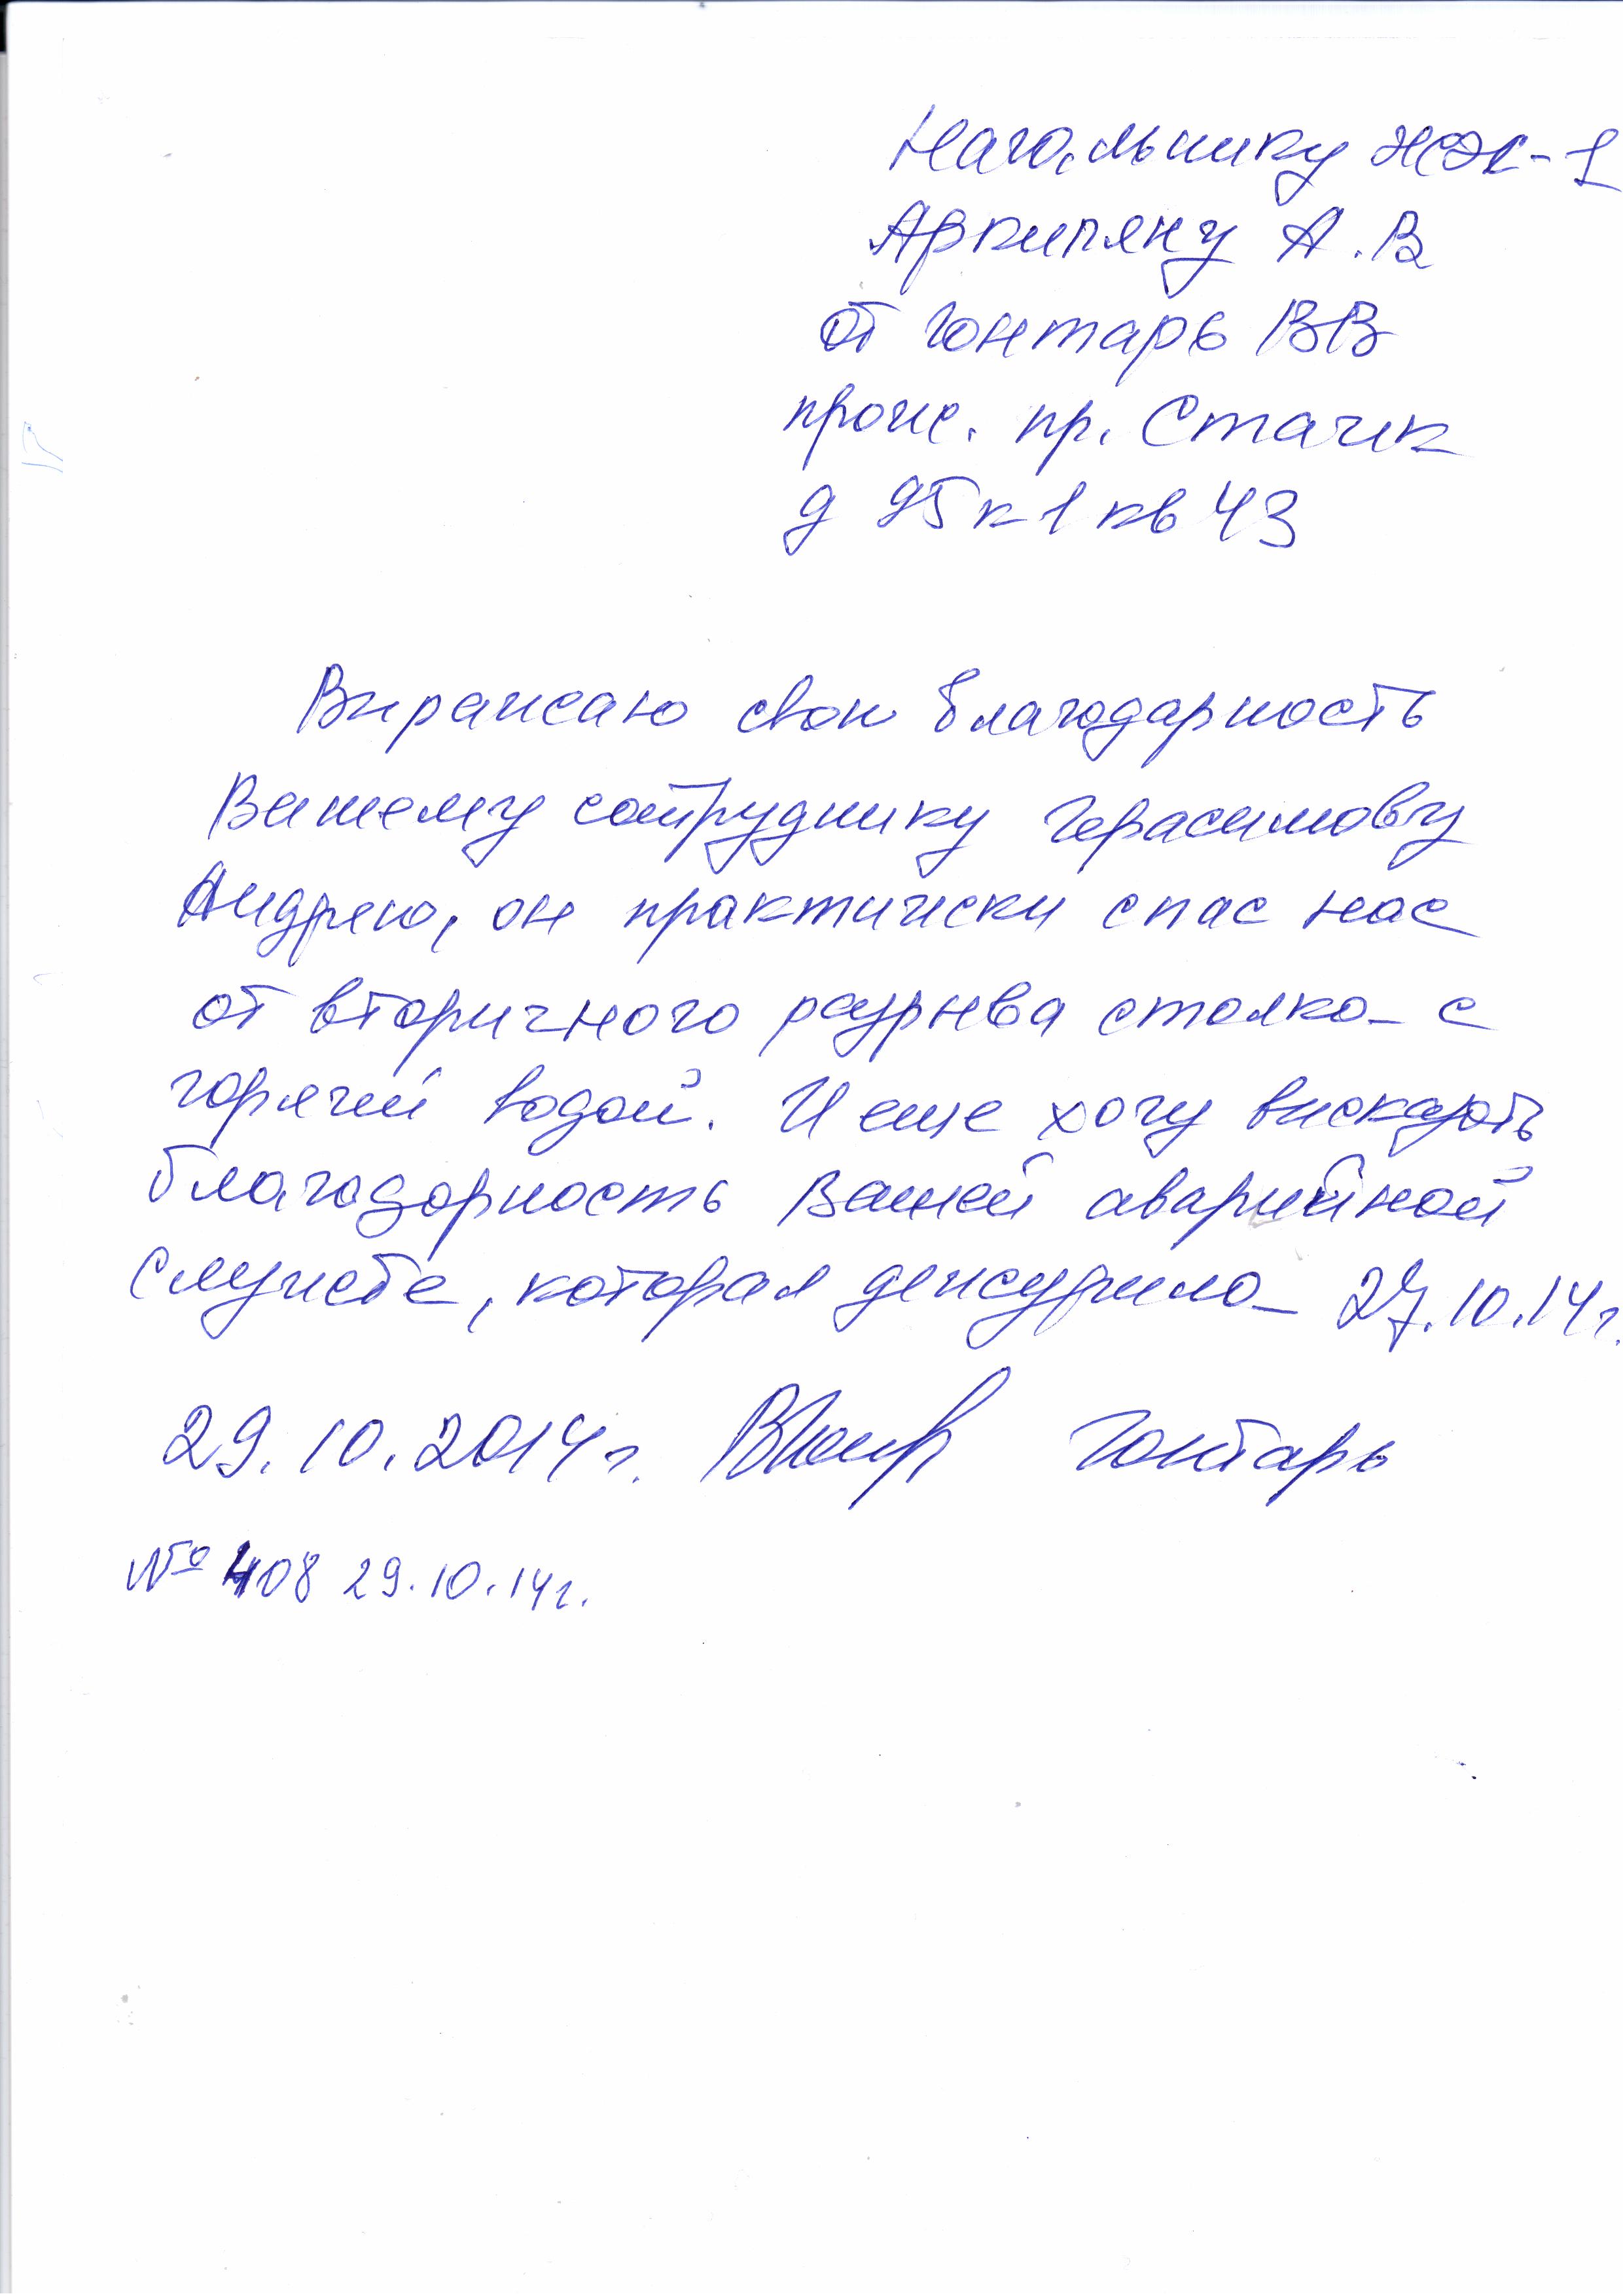 Начальнику ЖЭК-1
Аркипяну А.В
от Гонтарь ВВ
прож. пр. Стачек
д 95 к 1 кв 43
Выражаю свою благодарность
Вашему сотруднику Герасимову
Андрею, он практически спас нас
от вторичного разрыва стояка с
горячей водой. И еще хочу высказать
благодарность Вашей аварийной
службе, которая дежурила 27.10.14г.
29.10.2014г. Гонтарь
№ 408 29.10.14г.